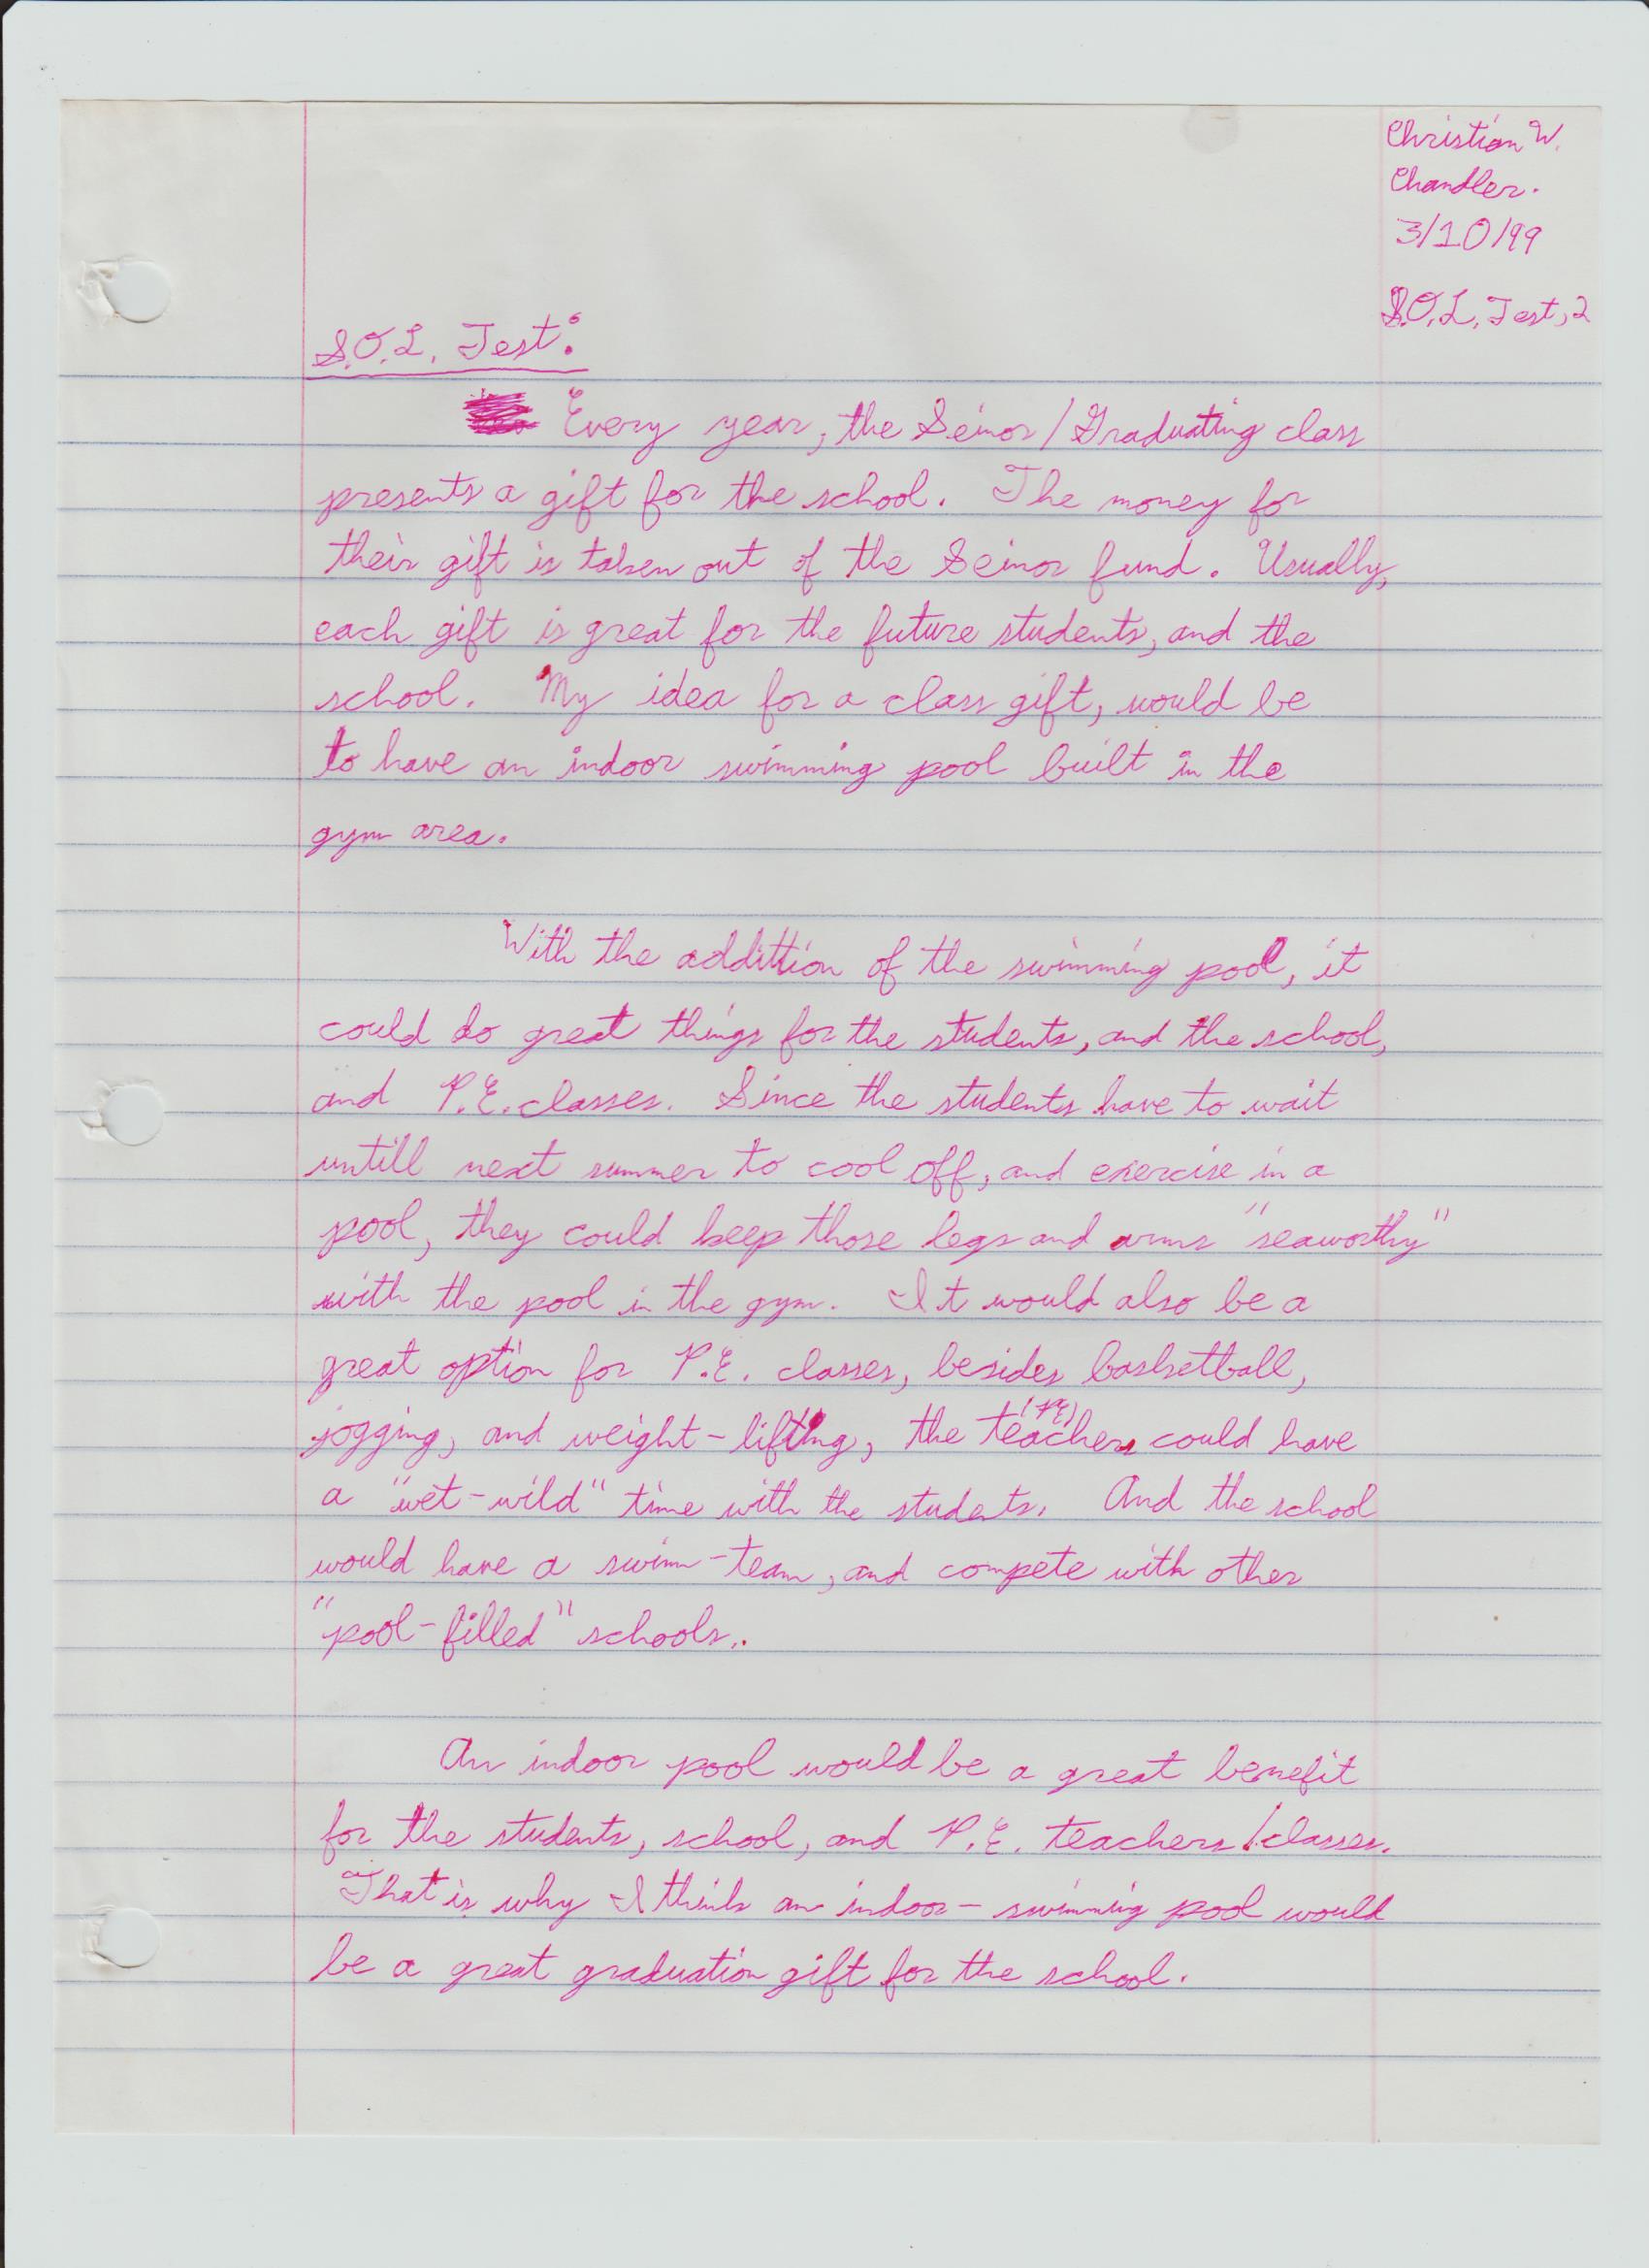 Christian W.
Chandler.
3/10/99
S.O.L. Test, 2
S.O.L. Test:
Every year, the Seinor/Graduating class
presents a gift for the school. The money for
their gift is taken out of the Seinor fund. Usually,
each gift is great for the future students, and the
school. My idea for a class gift, would be
to have an indoor swimming pool built in the
gym area.
With the addittion of the swimming pool, it
could do great things for the students, and the school,
and P.E. classes. Since the students have to wait
untill next summer to cool off, and exercise in a
pool, they could keep those legs and arms "seaworthy"
with the pool in the gym. It would also be a
great option for P.E. classes, besides basketball,
jogging, and weight-lifting, the (PE) teachers could have
a "wet-wild" time with the students. And the school
would have a swim-team, and compete with other
"pool-filled" schools.
An indoor pool would be a great benefit
for the students, school, and P.E. teachers/classes.
That is why I think an indoor-swimming pool would
be a great graduation gift for the school.